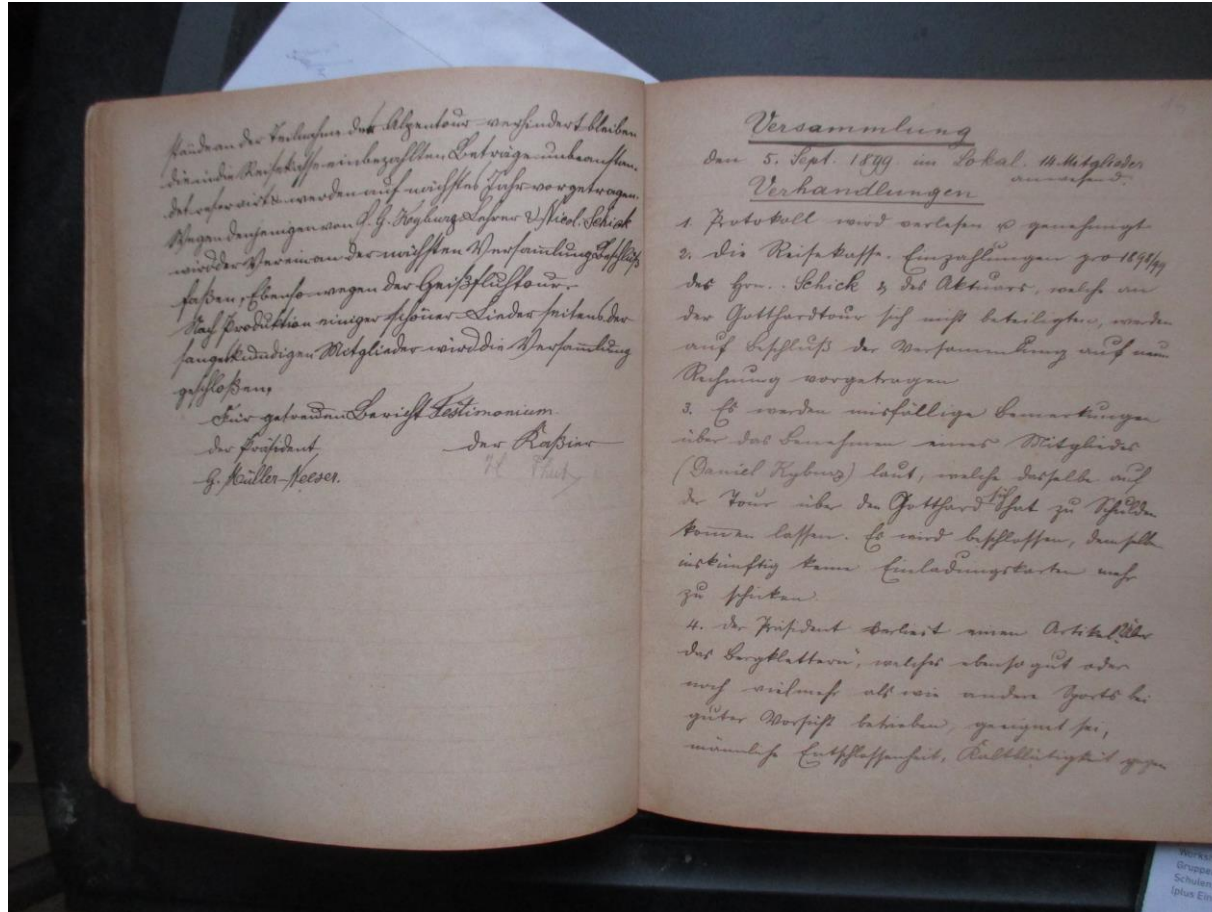 stände an der Teilnahme der Alpentour verhindert bleiben
die in die Reisekasse einbezahlten Beträge unbeanstan-
det werden auf nächstes Jahr vorgetragen.
Wegen denjenigen von J. G. Kyburz Lehrer & Nicol. Schick
wird der Verein an der nächsten Versam̅lung Beschluß
faßen, Ebenso wegen der Geißfluhtour.
Nach Produktion einiger schöner Lieder seitens der
sangeskundigen Mitglieder wird die Versam̅lung
geschloßen,
Für getreuen Bericht Testimonium
der Präsident der Kaßier
G. Müller-Neeser.
Versammlung
den 5. Sept. 1899 im Lokal. 14 Mitglieder
anwesend.
Verhandlungen
1. Protokoll wird verlesen & genehmigt
2. Die Reisekasse-Einzahlungen pro 1898/99
des Hrn. Schick & des Aktuars, welche an
der Gotthardtour sich nicht beteiligten, werden
auf Beschluß der Versammlung auf neue
Rechnung vorgetragen
3. Es werden mißfällige Bemerkungen
über das Benehmen eines Mitgliedes
(Daniel Kyburz) laut, welche dasselbe auf
der Tour über den Gotthard sich hat zu Schulden
kom̅en lassen. Es wird beschlossen, demselben
inskünftig keine Einladungskarten mehr
zu schicken.
4. Der Präsident verliest einen Artikel „Über
das Bergklettern", welches ebenso gut oder
noch vielmehr als wie andere Sports bei
guter Vorsicht betrieben, geeignet sei,
männliche Entschlossenheit, Kaltblütigkeit gegen
Gruppe
Schulen